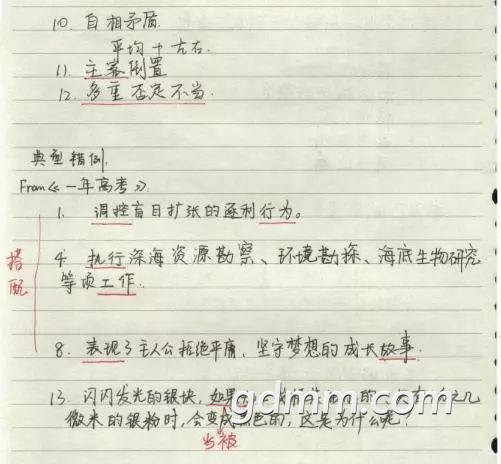 10. 自相矛盾.
平均 + 左右.
11. 主客倒置
12. 多重否定不当.
典型错例.
From《一年高考》.
搭配
1. 调控盲目扩张的逐利行为。
4 执行深海资源勘察、环境勘探、海底生物研究
等项工作.
8. 表现了主人公拒绝平庸、坚守梦想的成长故事.
13. 闪闪发光的银块,如果
微米的银粉时,会变成 色的,这是为什么呢?
当被
gdmm.com